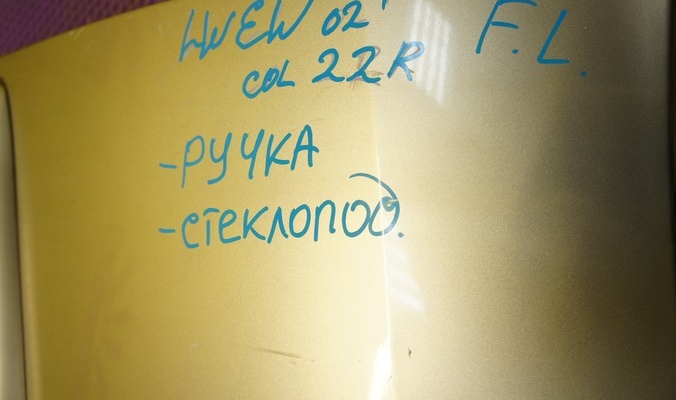 WEW 02' F.L.
COL 22R
-РУЧКА
-СТЕКЛОПОД.